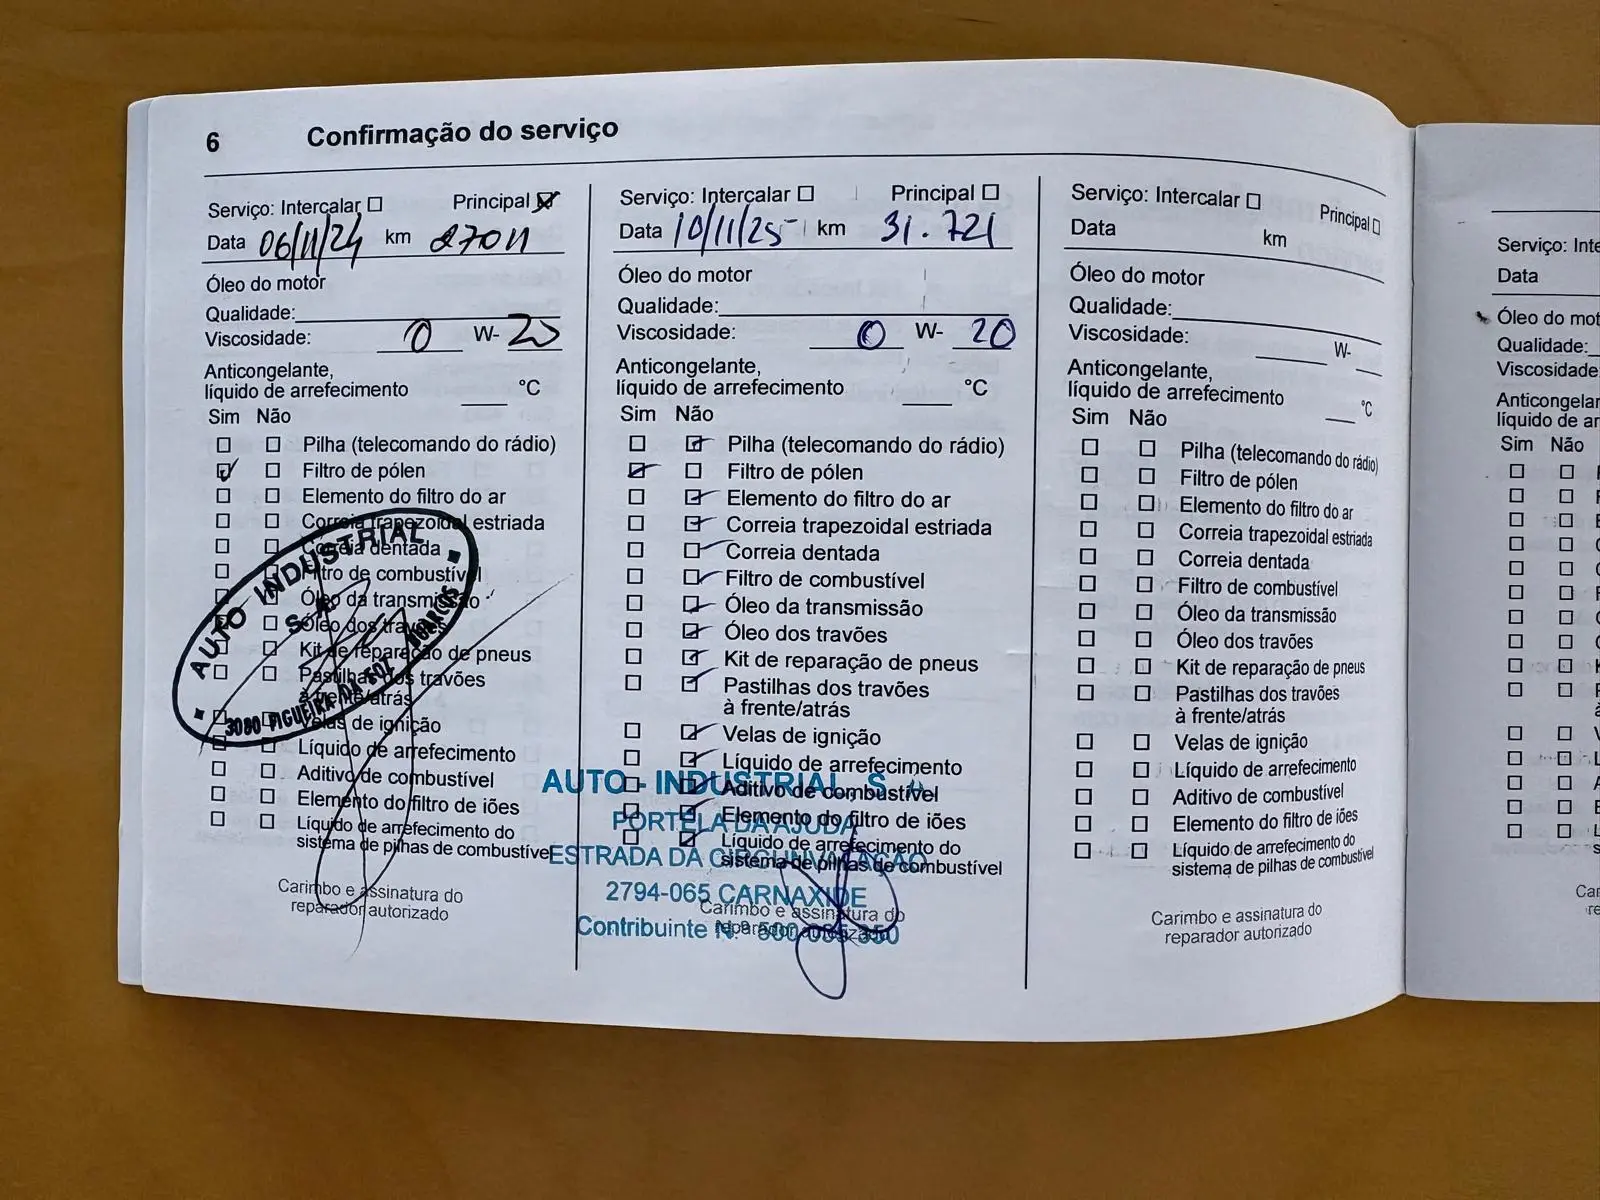 6 Confirmação do serviço
Serviço: Intercalar ☐ Principal ☑
Data 06/11/24 km 27011
Óleo do motor
Qualidade:
Viscosidade: 0 W- 20
Anticongelante,
líquido de arrefecimento °C
Sim Não
Pilha (telecomando do rádio)
Filtro de pólen
Elemento do filtro do ar
Correia trapezoidal estriada
Correia dentada
Filtro de combustível
Óleo da transmissão
Óleo dos travões
Kit de reparação de pneus
Pastilhas dos travões
à frente/atrás
Velas de ignição
Líquido de arrefecimento
Aditivo de combustível
Elemento do filtro de iões
Líquido de arrefecimento do
sistema de pilhas de combustível
Carimbo e assinatura do
reparador autorizado
AUTO INDUSTRIAL
S.A.
3080 FIGUEIRA DA FOZ BUARCOS
Serviço: Intercalar ☐ Principal ☐
Data 10/11/25 km 31.721
Óleo do motor
Qualidade:
Viscosidade: 0 W- 20
Anticongelante,
líquido de arrefecimento °C
Sim Não
Pilha (telecomando do rádio)
Filtro de pólen
Elemento do filtro do ar
Correia trapezoidal estriada
Correia dentada
Filtro de combustível
Óleo da transmissão
Óleo dos travões
Kit de reparação de pneus
Pastilhas dos travões
à frente/atrás
Velas de ignição
Líquido de arrefecimento
Aditivo de combustível
Elemento do filtro de iões
Líquido de arrefecimento do
sistema de pilhas de combustível
Carimbo e assinatura do
reparador autorizado
AUTO - INDUSTRIAL, S.
PORTELA DA AJUDA
ESTRADA DA CIRCUNVALAÇÃO
2794-065 CARNAXIDE
Contribuinte N.º 500
Serviço: Intercalar ☐ Principal ☐
Data km
Óleo do motor
Qualidade:
Viscosidade: W-
Anticongelante,
líquido de arrefecimento °C
Sim Não
Pilha (telecomando do rádio)
Filtro de pólen
Elemento do filtro do ar
Correia trapezoidal estriada
Correia dentada
Filtro de combustível
Óleo da transmissão
Óleo dos travões
Kit de reparação de pneus
Pastilhas dos travões
à frente/atrás
Velas de ignição
Líquido de arrefecimento
Aditivo de combustível
Elemento do filtro de iões
Líquido de arrefecimento do
sistema de pilhas de combustível
Carimbo e assinatura do
reparador autorizado
Serviço: Inte
Data
Óleo do mot
Qualidade:
Viscosidade
Anticongelar
líquido de ar
Sim Não